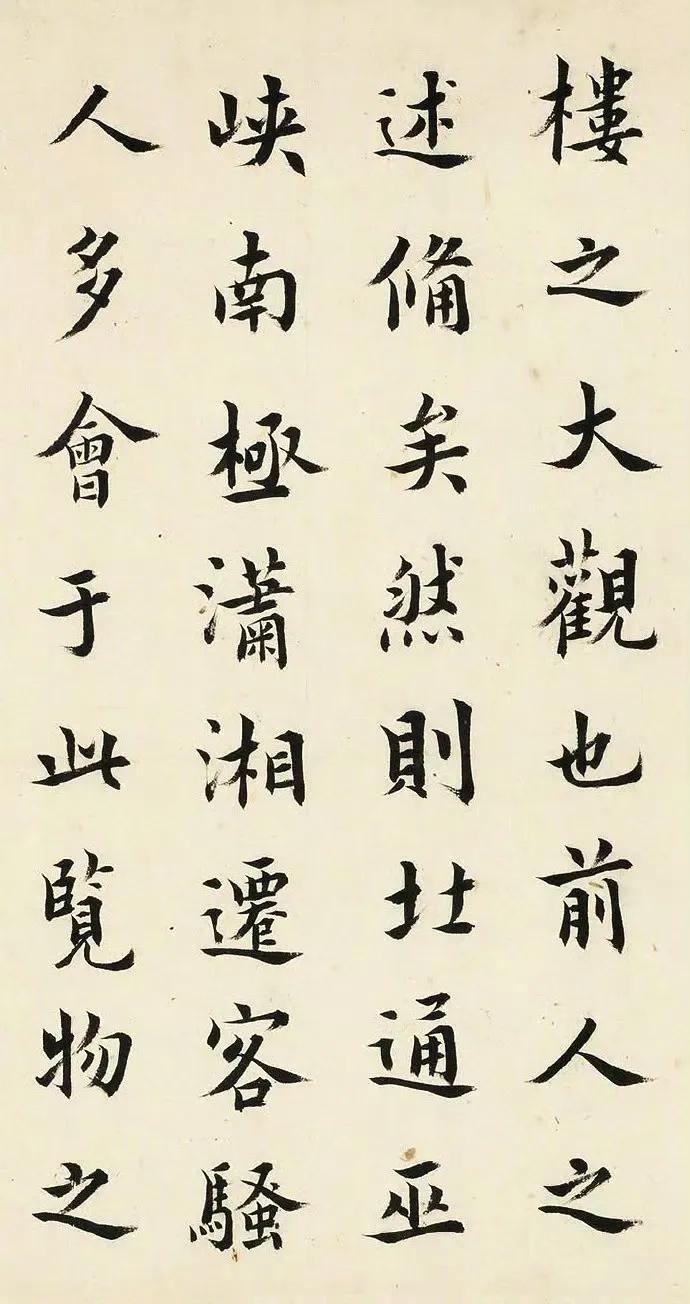 樓之大觀也前人之
述俻矣然則北通巫
峽南極瀟湘遷客騷
人多會于此覽物之